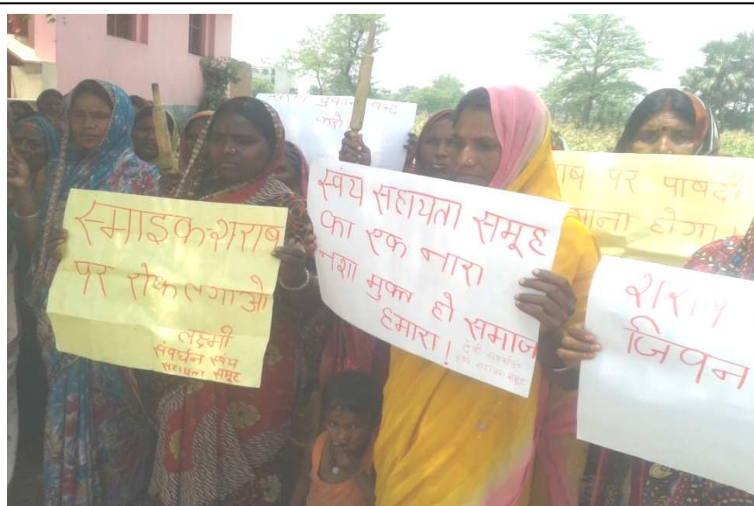 दुकान बन्द
करो
स्माइक शराब
पर रोक लगाओ
लक्ष्मी
संवर्धन स्वंय
सहायता समूह
स्वंय सहायता समूह
का एक नारा
नशा मुक्त हो समाज
हमारा!
पर पाबंदी
होगा
शराब
जिवन